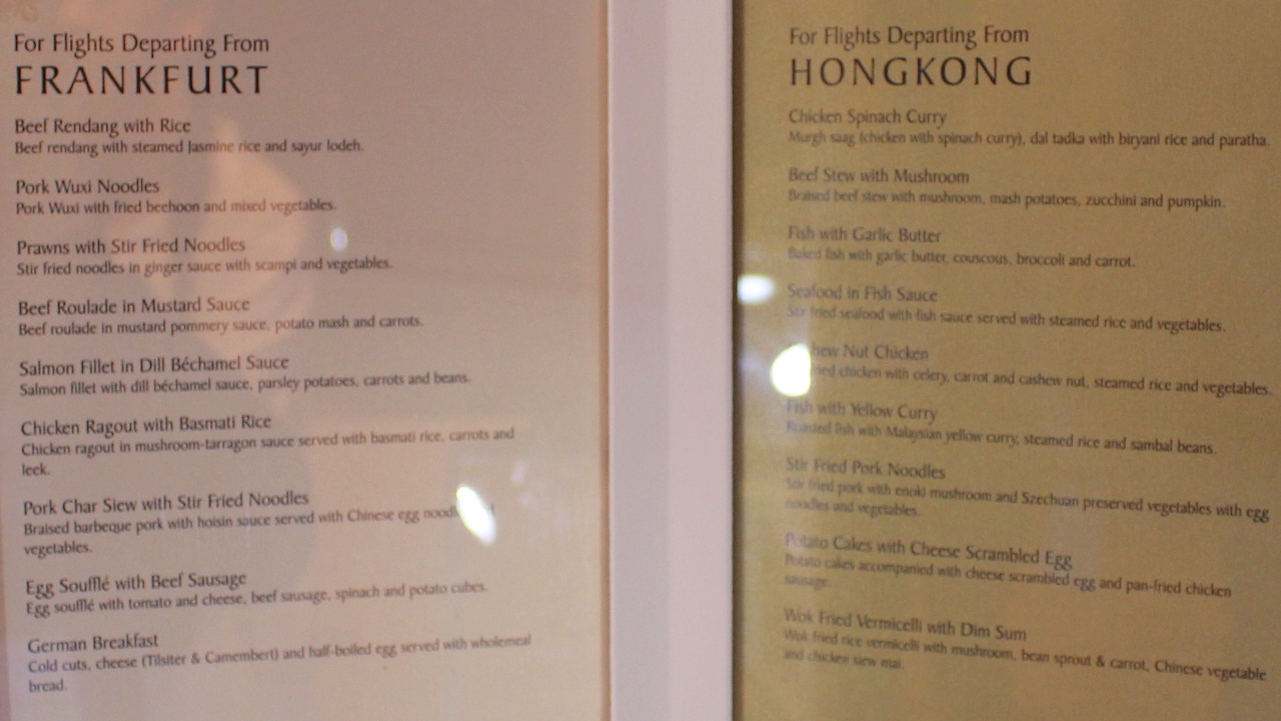 For Flights Departing From
FRANKFURT
Beef Rendang with Rice
Beef rendang with steamed Jasmine rice and sayur lodeh.
Pork Wuxi Noodles
Pork Wuxi with fried beehoon and mixed vegetables.
Prawns with Stir Fried Noodles
Stir fried noodles in ginger sauce with scampi and vegetables.
Beef Roulade in Mustard Sauce
Beef roulade in mustard pommery sauce, potato mash and carrots.
Salmon Fillet in Dill Béchamel Sauce
Salmon fillet with dill béchamel sauce, parsley potatoes, carrots and beans.
Chicken Ragout with Basmati Rice
Chicken ragout in mushroom-tarragon sauce served with basmati rice, carrots and
leek.
Pork Char Siew with Stir Fried Noodles
Braised barbeque pork with hoisin sauce served with Chinese egg
vegetables.
Egg Soufflé with Beef Sausage
Egg soufflé with tomato and cheese, beef sausage, spinach and potato cubes.
German Breakfast
Cold cuts, cheese (Tilsiter & Camembert) and half-boiled egg served with wholemeal
bread.
For Flights Departing From
HONGKONG
Chicken Spinach Curry
Murgh saag (chicken with spinach curry), dal tadka with biryani rice and paratha.
Beef Stew with Mushroom
Braised beef stew with mushroom, mash potatoes, zucchini and pumpkin.
Fish with Garlic Butter
Baked fish with garlic butter, couscous, broccoli and carrot.
Seafood in Fish Sauce
Stir fried seafood with fish sauce served with steamed rice and vegetables.
Nut Chicken
chicken with celery, carrot and cashew nut, steamed rice and vegetables.
Fish with Yellow Curry
Roasted fish with Malaysian yellow curry, steamed rice and sambal beans.
Stir Fried Pork Noodles
Stir fried pork with enoki mushroom and Szechuan preserved vegetables with egg
noodles and vegetables.
Potato Cakes with Cheese Scrambled Egg
Potato cakes accompanied with cheese scrambled egg and pan-fried chicken
sausage.
Wok Fried Vermicelli with Dim Sum
Wok fried rice vermicelli with mushroom, bean sprout & carrot, Chinese vegetable
and chicken siew mai.